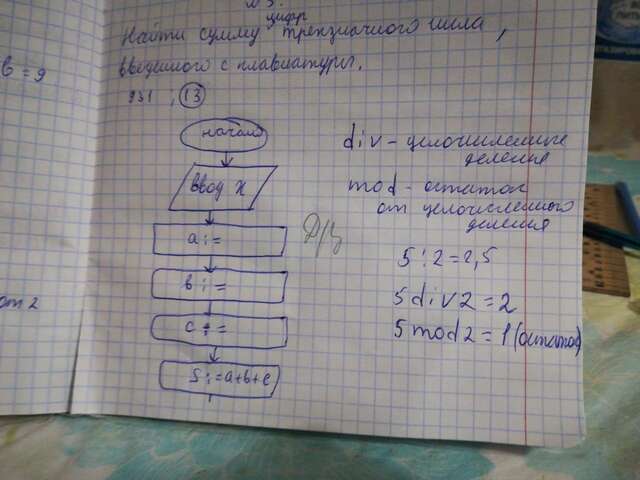 N 3.
цифр
Найти сумму трехзначного числа,
введенного с клавиатуры.
931, 13
начало
ввод x
a :=
в :=
c :=
S := a+b+c
Д/З
div - целочисленное
деление
mod - остаток
от целочисленного
деления
5 : 2 = 2,5
5 div 2 = 2
5 mod 2 = 1 (остаток)
в = 9
от 2